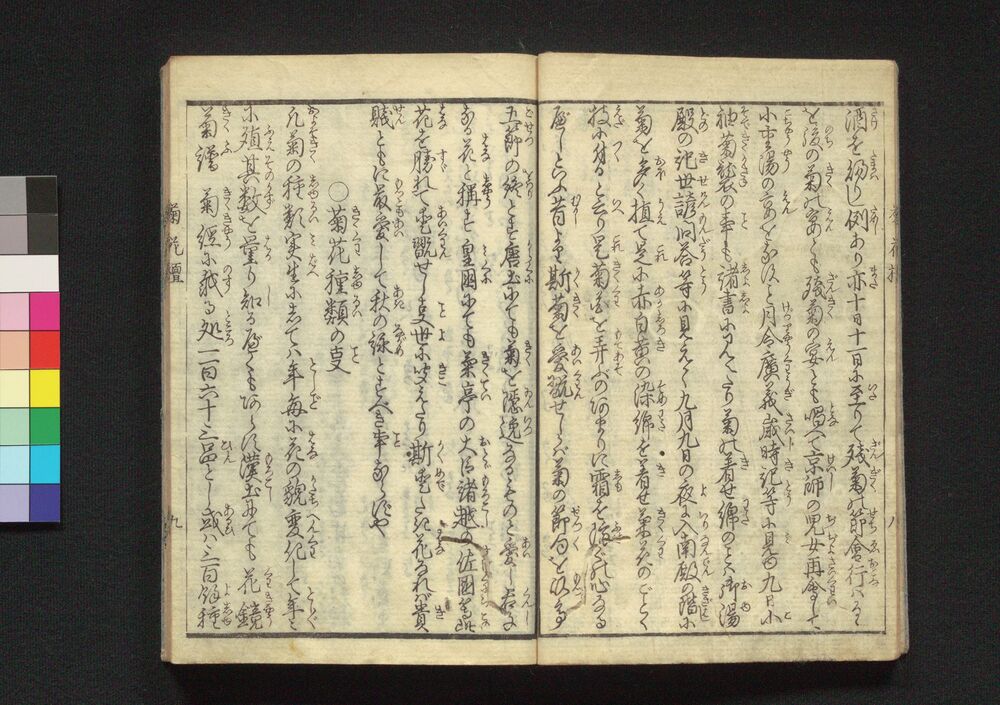 酒を賜わし例あり亦十日十一日に至りて残菊の節會行はる
を後の菊の宴とも残菊の宴とも唱へて京師の児女再會して
小重陽の宴をなすこと月令廣義歳時記等に見ゆ九月に
袖菊襲の事も諸書に見へたり菊の着せ綿のこと御湯
殿の記世諺問答等に見えて九月九日の夜に入南殿の階に
菊を多く植て是に赤白黄の染綿を着せ菊花のごとく
枝に付ると云り是菊花を弄ぶのあまりに霜を防ぐの心なる
べしといふ昔より斯菊を愛翫せしかば菊の節句を以
五節の終とす唐土にても菊を隠逸なるものと愛し君子
なる花と稱す皇國にても菊亭の大臣諸越の佐國
花を勝れて愛翫せし事世に聞えたり斯愛たき花なれば貴
賤ともに最愛して秋の詠とすべき事ならずや
○菊花種類の事
凡菊の種類実生にしては年毎に花の貌変化して年々
に殖其数を量り知るべくもあらず漢土にても花鏡
菊譜 菊經に載る処一百六十三品とし或は三百餘種
菊花壇
九
八